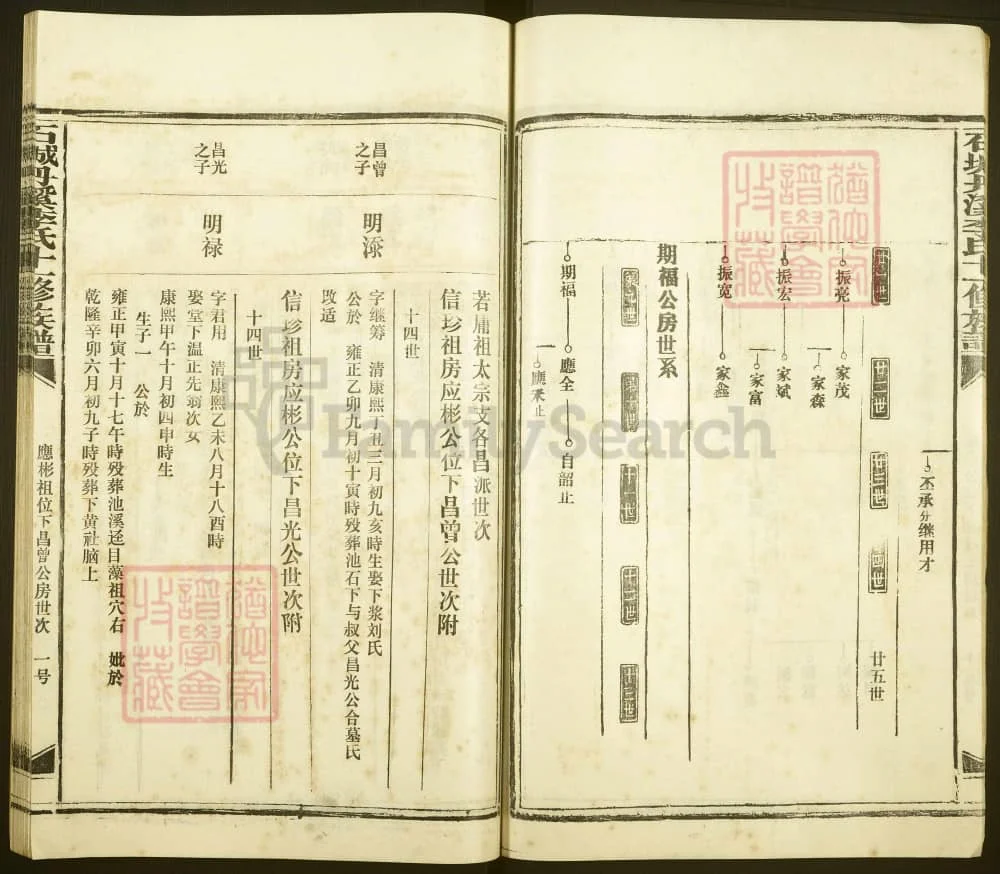 石城丹溪李氏十一修族譜
丕承分继用才
廿一世
廿二世
廿三世
廿四世
廿五世
振亮
家茂
家森
振宏
家斌
家富
振宽
家鑫
期福公房世系
十一世
十二世
十三世
期福
應全
自韶止
應
止
若庸祖太宗支各昌派世次
信珍祖房应彬公位下昌曾公世次附
十四世
昌曾之子
明渿
字继筹 清康熙丁丑三月初九亥時生娶下浆刘氏
公於 雍正乙卯九月初十寅時殁葬池石下与叔父昌光公合墓氏
改适
信珍祖房应彬公位下昌光公世次附
十四世
昌光之子
明禄
字君用 清康熙乙未八月十八酉時
娶堂下温正先翁次女
康熙甲午十月初四申時生
生子一 公於
雍正甲寅十月十七午時殁葬池溪迳目藻祖穴右 妣於
乾隆辛卯六月初九子時殁葬下黄社脑上
石城丹溪李氏十一修族譜
應彬祖位下昌曾公房世次 一号
猶他家譜學會收藏
猶他家譜學會收藏
FamilySearch